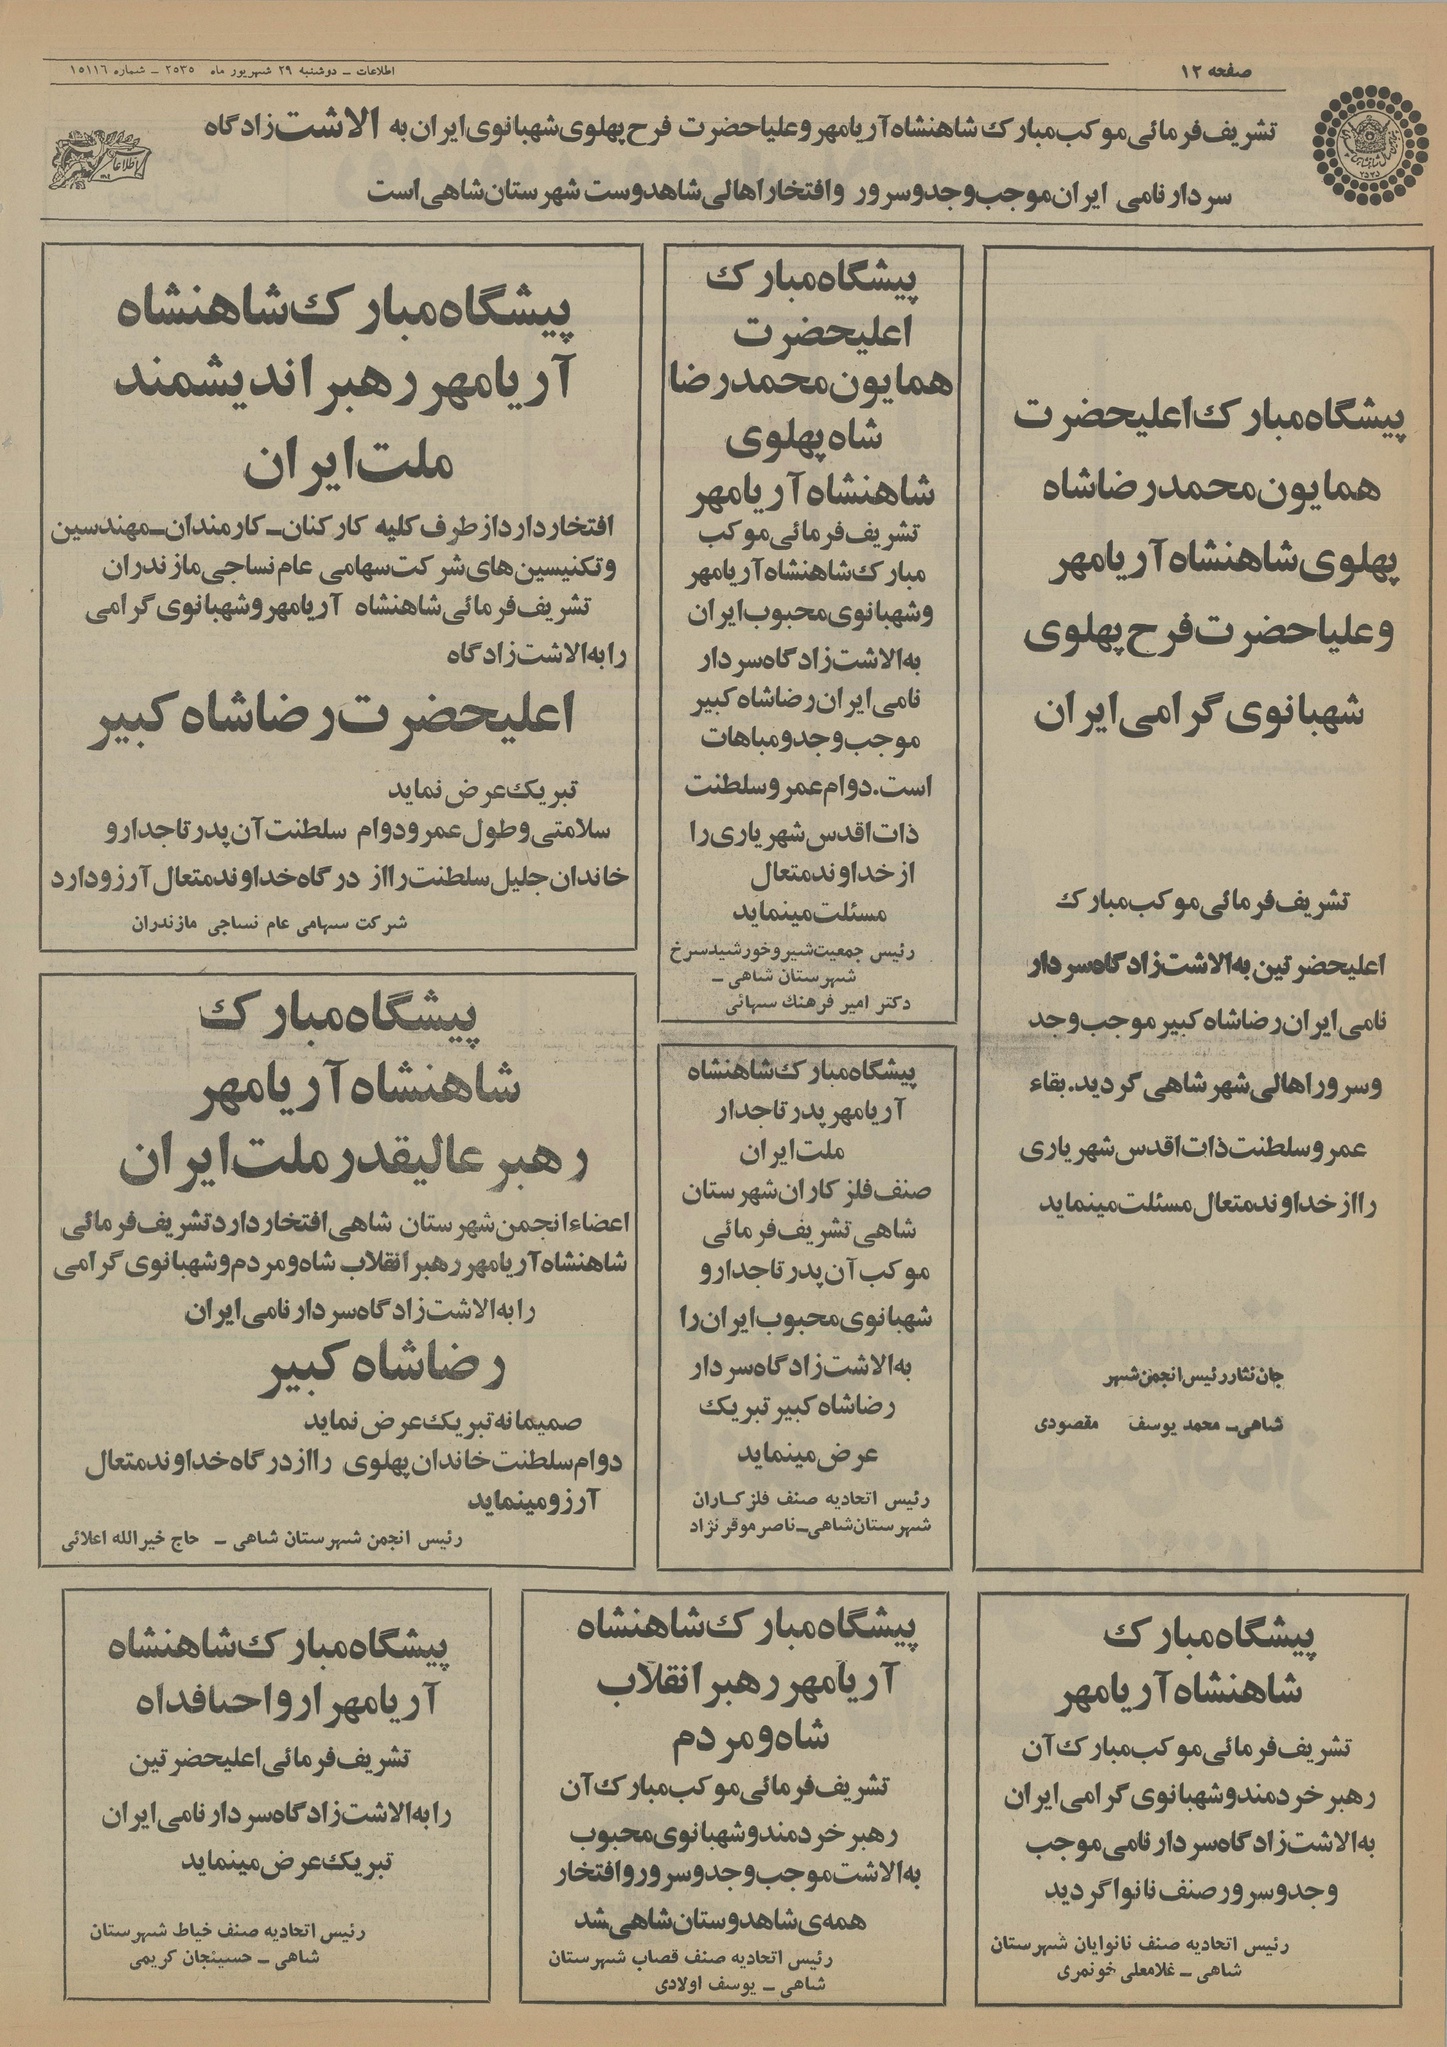 صفحه ۱۲
اطلاعات ـ دوشنبه ۲۹ شهریور ماه ۲۵۳۵ ـ شماره ۱۵۱۱۶
تشریف‌فرمائی موکب مبارک شاهنشاه آریامهر و علیاحضرت فرح پهلوی شهبانوی ایران به الاشت زادگاه
سردار نامی ایران موجب وجد و سرور و افتخار اهالی شاهدوست شهرستان شاهی است
۲۵۳۵
اطلاعات
پیشگاه مبارک اعلیحضرت
همایون محمدرضا شاه
پهلوی شاهنشاه آریامهر
و علیاحضرت فرح پهلوی
شهبانوی گرامی ایران
تشریف‌فرمائی موکب مبارک
اعلیحضرتین به الاشت زادگاه سردار
نامی ایران رضاشاه کبیر موجب وجد
و سرور اهالی شهر شاهی گردید. بقاء
عمر و سلطنت ذات اقدس شهریاری
را از خداوند متعال مسئلت مینماید
جان نثار رئیس انجمن شهر
شاهی ـ محمد یوسف مقصودی
پیشگاه مبارک
اعلیحضرت
همایون محمدرضا
شاه پهلوی
شاهنشاه آریامهر
تشریف‌فرمائی موکب
مبارک شاهنشاه آریامهر
و شهبانوی محبوب ایران
به الاشت زادگاه سردار
نامی ایران رضاشاه کبیر
موجب وجد و مباهات
است. دوام عمر و سلطنت
ذات اقدس شهریاری را
از خداوند متعال
مسئلت مینماید
رئیس جمعیت شیر و خورشید سرخ
شهرستان شاهی ـ
دکتر امیر فرهنک سهائی
پیشگاه مبارک شاهنشاه
آریامهر رهبر اندیشمند
ملت ایران
افتخار دارد از طرف کلیه کارکنان ـ کارمندان ـ مهندسین
و تکنیسین‌های شرکت سهامی عام نساجی مازندران
تشریف‌فرمائی شاهنشاه آریامهر و شهبانوی گرامی
را به الاشت زادگاه
اعلیحضرت رضاشاه کبیر
تبریک عرض نماید
سلامتی و طول عمر و دوام سلطنت آن پدر تاجدار و
خاندان جلیل سلطنت را از درگاه خداوند متعال آرزو دارد
شرکت سهامی عام نساجی مازندران
پیشگاه مبارک شاهنشاه
آریامهر پدر تاجدار
ملت ایران
صنف فلزکاران شهرستان
شاهی تشریف‌فرمائی
موکب آن پدر تاجدار و
شهبانوی محبوب ایران را
به الاشت زادگاه سردار
رضاشاه کبیر تبریک
عرض مینماید
رئیس اتحادیه صنف فلزکاران
شهرستان شاهی ـ ناصر موقر نژاد
پیشگاه مبارک
شاهنشاه آریامهر
رهبر عالیقدر ملت ایران
اعضاء انجمن شهرستان شاهی افتخار دارد تشریف‌فرمائی
شاهنشاه آریامهر رهبر انقلاب شاه و مردم و شهبانوی گرامی
را به الاشت زادگاه سردار نامی ایران
رضاشاه کبیر
صمیمانه تبریک عرض نماید
دوام سلطنت خاندان پهلوی را از درگاه خداوند متعال
آرزو مینماید
رئیس انجمن شهرستان شاهی ـ حاج خیرالله اعلائی
پیشگاه مبارک
شاهنشاه آریامهر
تشریف‌فرمائی موکب مبارک آن
رهبر خردمند و شهبانوی گرامی ایران
به الاشت زادگاه سردار نامی موجب
وجد و سرور صنف نانوا گردید
رئیس اتحادیه صنف نانوایان شهرستان
شاهی ـ غلامعلی خونمری
پیشگاه مبارک شاهنشاه
آریامهر رهبر انقلاب
شاه و مردم
تشریف‌فرمائی موکب مبارک آن
رهبر خردمند و شهبانوی محبوب
به الاشت موجب وجد و سرور و افتخار
همه‌ی شاهدوستان شاهی شد
رئیس اتحادیه صنف قصاب شهرستان
شاهی ـ یوسف اولادی
پیشگاه مبارک شاهنشاه
آریامهر ارواحنا فداه
تشریف‌فرمائی اعلیحضرتین
را به الاشت زادگاه سردار نامی ایران
تبریک عرض مینماید
رئیس اتحادیه صنف خیاط شهرستان
شاهی ـ حسینجان کریمی